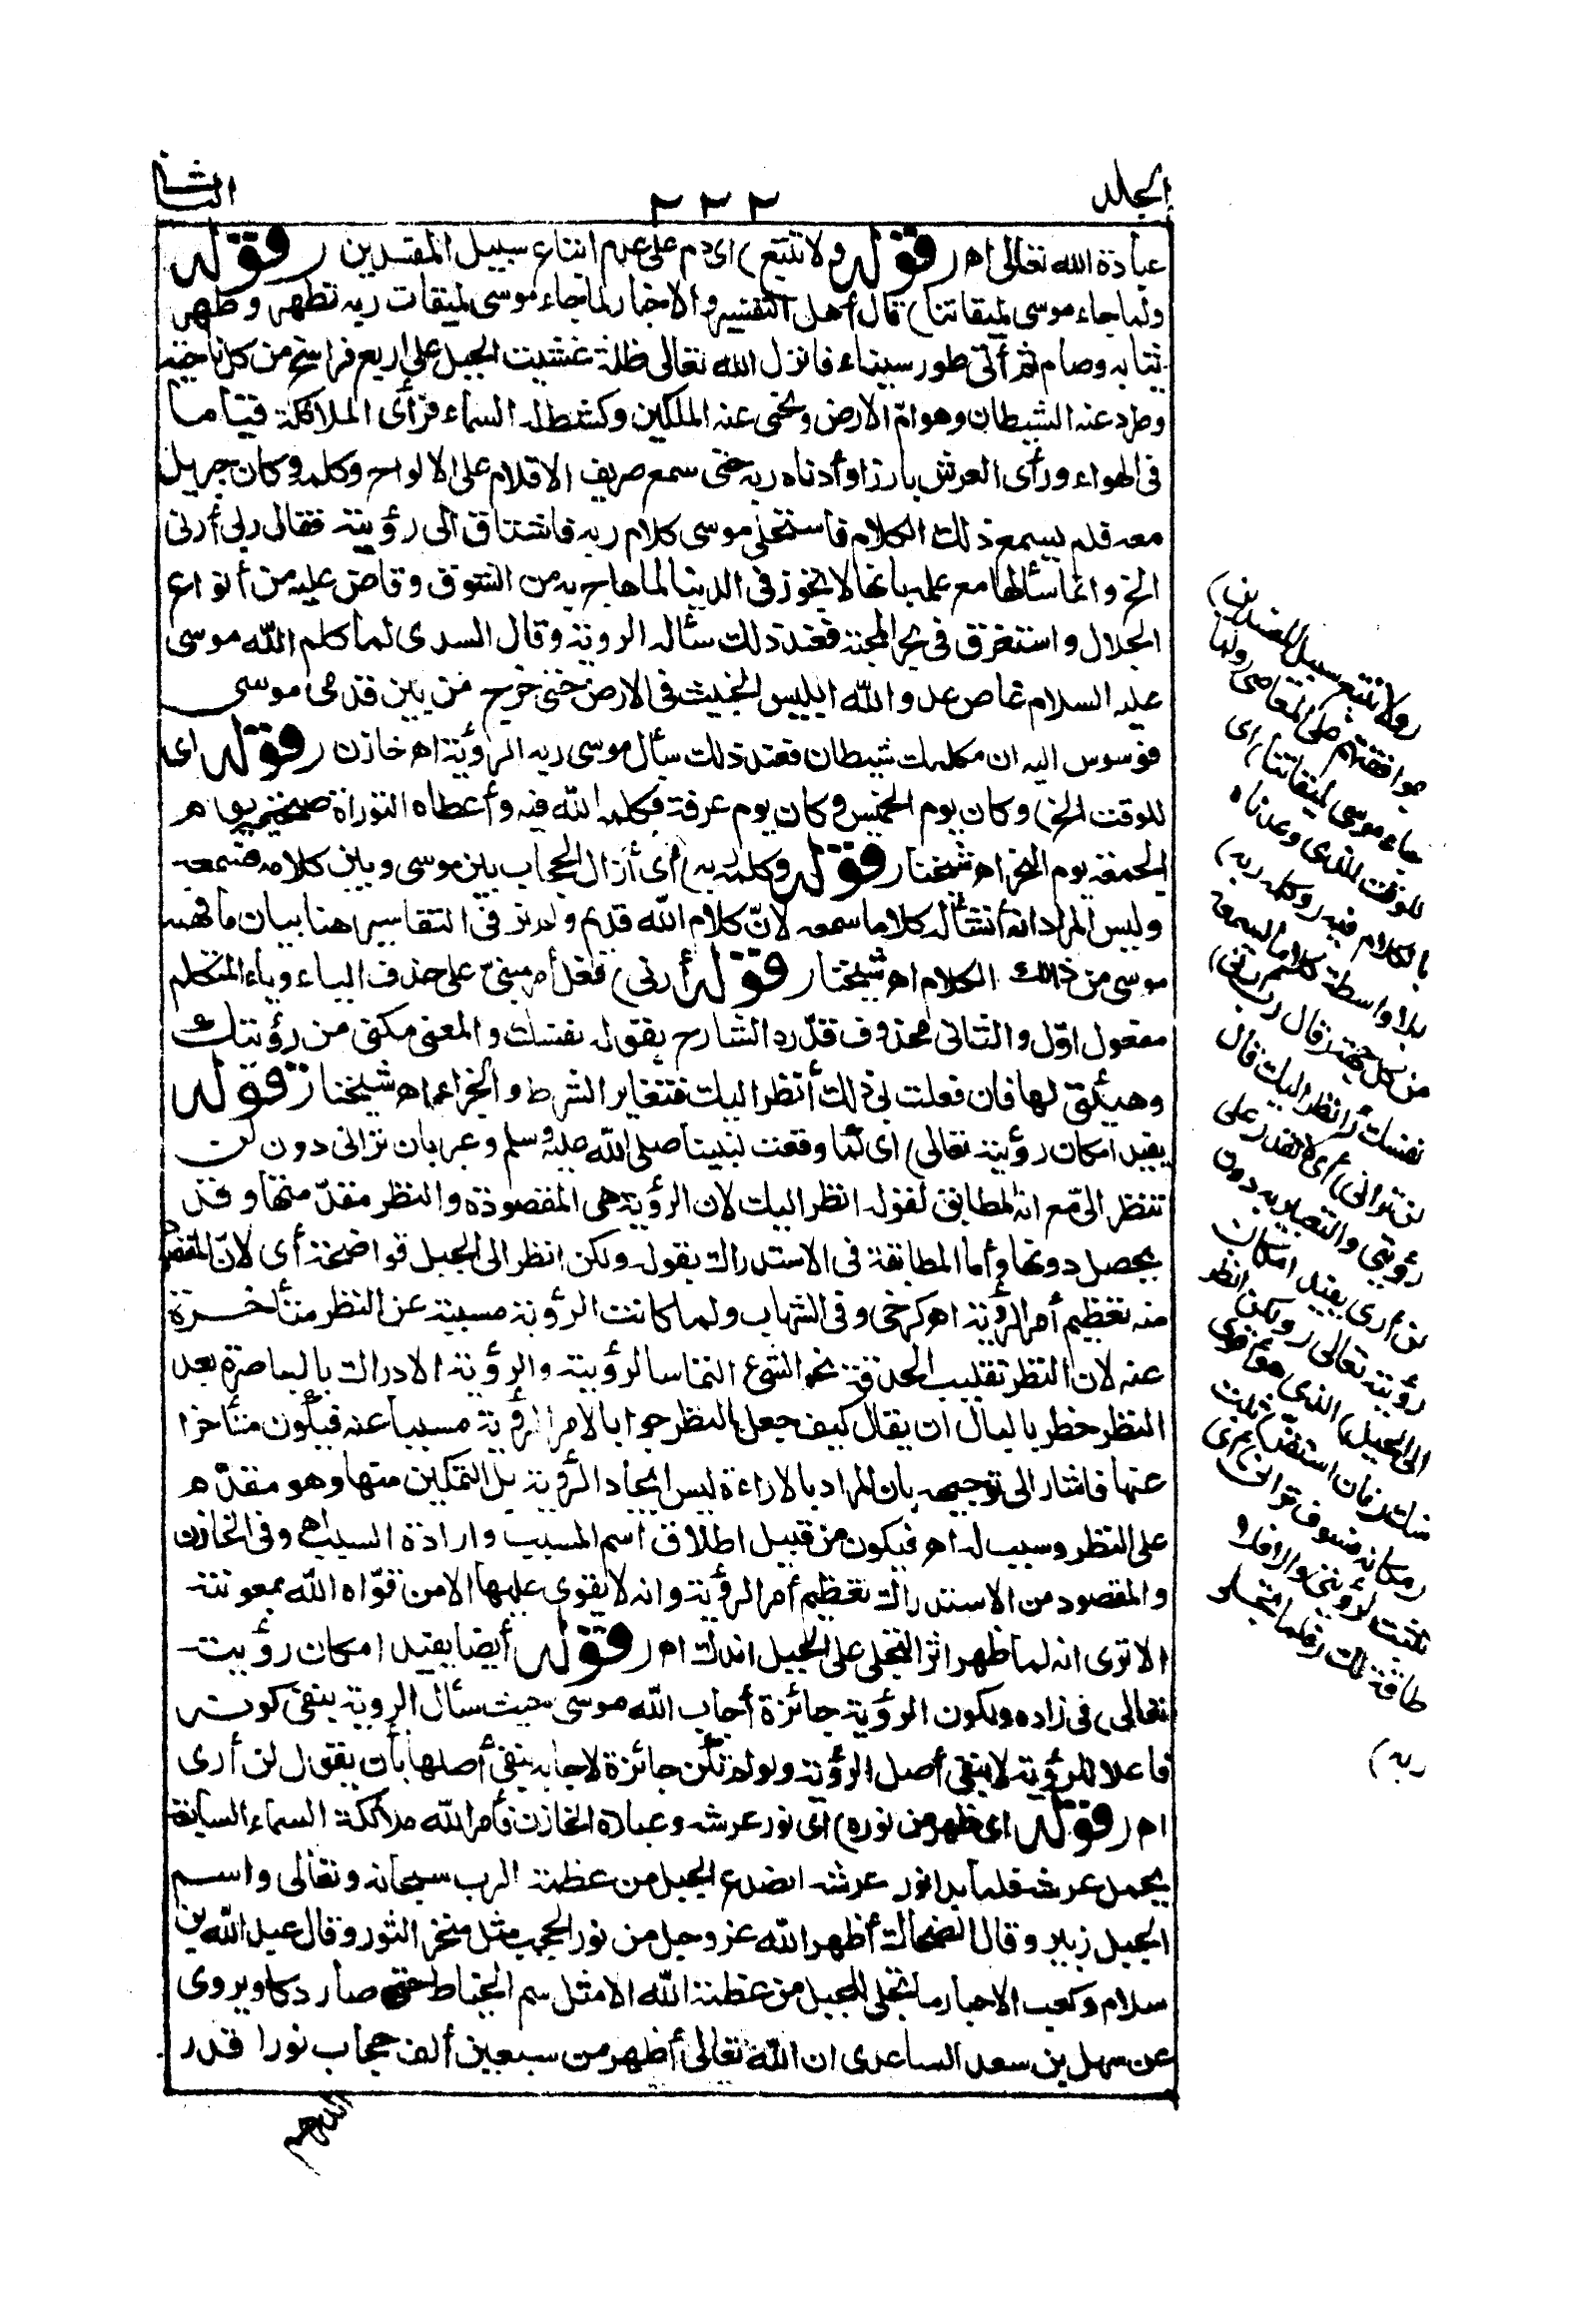 المجلد
٢٢٢
الثانى
عبادة الله تعالى اهـ (قوله ولا تتبع) اى دم على عدم اتباع سبيل المفسدين (قوله
ولما جاء موسى لميقاتنا) قال أهل التفسير والاخبار لما جاء موسى لميقات ربه تطهر وطهر
ثيابه وصام ثم أتى طور سيناء فانزل الله تعالى ظلة غشيت الجبل على اربع فراسخ من كل ناحية
وطرد عنه الشيطان وهوامّ الارض ونحى عنه الملكين وكشط له السماء فرأى الملائكة قياما
فى الهواء ورأى العرش بارزا وأدناه ربه حتى سمع صريف الاقلام على الالواح وكلمه وكان جبريل
معه فلم يسمع ذلك الكلام فاستحلى موسى كلام ربه فاشتاق الى رؤيته فقال رب أرنى
الخ وانما سألها مع علمه بانها لا تجوز فى الدنيا لما هاج به من الشوق وفاض عليه من أنواع
الجلال واستغرق فى بحر المحبة فعند ذلك سأله الرؤية وقال السدى لما كلم الله موسى
عليه السلام غاص عدو الله ابليس الخبيث فى الارض حتى خرج من بين قدمى موسى
فوسوس اليه ان مكلمك شيطان فعند ذلك سأل موسى ربه الرؤية اهـ خازن (قوله اى
للوقت الخ) وكان يوم الخميس وكان يوم عرفة فكلمه الله فيه وأعطاه التوراة صبيحة يوم
الجمعة يوم النحر اهـ شيخنا (قوله وكلمه ربه) أى أزال الحجاب بين موسى وبين كلامه فسمعه
وليس المراد انه أنشأ له كلاما سمعه لانّ كلام الله قديم ولم نر فى التفاسير هنا بيان ما فهمه
موسى من ذلك الكلام اهـ شيخنا (قوله أرنى) فعل أمر مبنىّ على حذف الياء وياء المتكلم
مفعول اوّل والثانى محذوف قدّره الشارح بقوله نفسك والمعنى مكنى من رؤيتك
وهيئنى لها فان فعلت بى ذلك أنظر اليك فتغاير الشرط والجزاء اهـ شيخنا (قوله
يفيد امكان رؤيته تعالى) اى لما وقعت لنبينا صلى الله عليه وسلم وعبر بلن ترانى دون لن
تنظر الىّ مع انه المطابق لقوله انظر اليك لان الرؤية هى المقصودة والنظر مقدّمتها وقد
يحصل دونها وأما المطابقة فى الاستدراك بقوله ولكن انظر الى الجبل فواضحة أى لانّ المقصود
منه تعظيم أمر الرؤية اهـ كرخى وفى الشهاب ولما كانت الرؤية مسببة عن النظر متأخرة
عنه لان النظر تقليب الحدقة نحو الشئ التماسا لرؤيته والرؤية الادراك بالباصرة بعد
النظر خطر بالبال ان يقال كيف جعل النظر جوابا لامر الرؤية مسببا عنه فيكون متأخرا
عنها فاشار الى توجيهه بان المراد بالاراءة ليس ايجاد الرؤية بل التمكين منها وهو مقدّم
على النظر وسبب له اهـ فيكون من قبيل اطلاق اسم المسبب وارادة السبب اهـ وفى الخازن
والمقصود من الاستدراك تعظيم أمر الرؤية وانه لا يقوى عليها الا من قوّاه الله بمعونته
الا ترى انه لما ظهر اثر التجلى على الجبل اندك اهـ (قوله أيضا يفيد امكان رؤيته
تعالى) فى زاده ولكون الرؤية جائزة أجاب الله موسى حيث سأل الرؤية بنفى كونه
فاعلا للرؤية لا بنفى أصل الرؤية ولو لم تكن جائزة لاجابه بنفى أصلها بأن يقول لن أرى
اهـ (قوله اى ظهر من نوره) اى نور عرشه وعبارة الخازن فأمر الله ملائكة السماء السابعة
بحمل عرشه فلما بدا نور عرشه انصدع الجبل من عظمة الرب سبحانه وتعالى واسم
الجبل زبير وقال الضحاك أظهر الله عز وجل من نور الحجب مثل منخر الثور وقال عبد الله بن
سلام وكعب الاحبار ما تجلى للجبل من عظمة الله الا مثل سم الخياط حتى صار دكا ويروى
عن سهل بن سعد الساعدى ان الله تعالى أظهر من سبعين ألف حجاب نورا قدر
الدرهم
(ولا تتبع سبيل المفسدين)
بموافقتهم على المعاصى (ولما
جاء موسى لميقاتنا) اى
للوقت الذى وعدناه
بالكلام فيه (وكلمه ربه)
بلا واسطة كلاما يسمعه
من كل جهة (قال رب أرنى)
نفسك (أنظر اليك قال
لن ترانى) أى لا تقدر على
رؤيتى والتعبير به دون
لن أرى يفيد امكان
رؤيته تعالى (ولكن انظر
الى الجبل) الذى هو أقوى
منك (فان استقرّ) ثبت
(مكانه فسوف ترانى) أى
تثبت لرؤيتى والا فلا
طاقة لك (فلما تجلى
ربه)